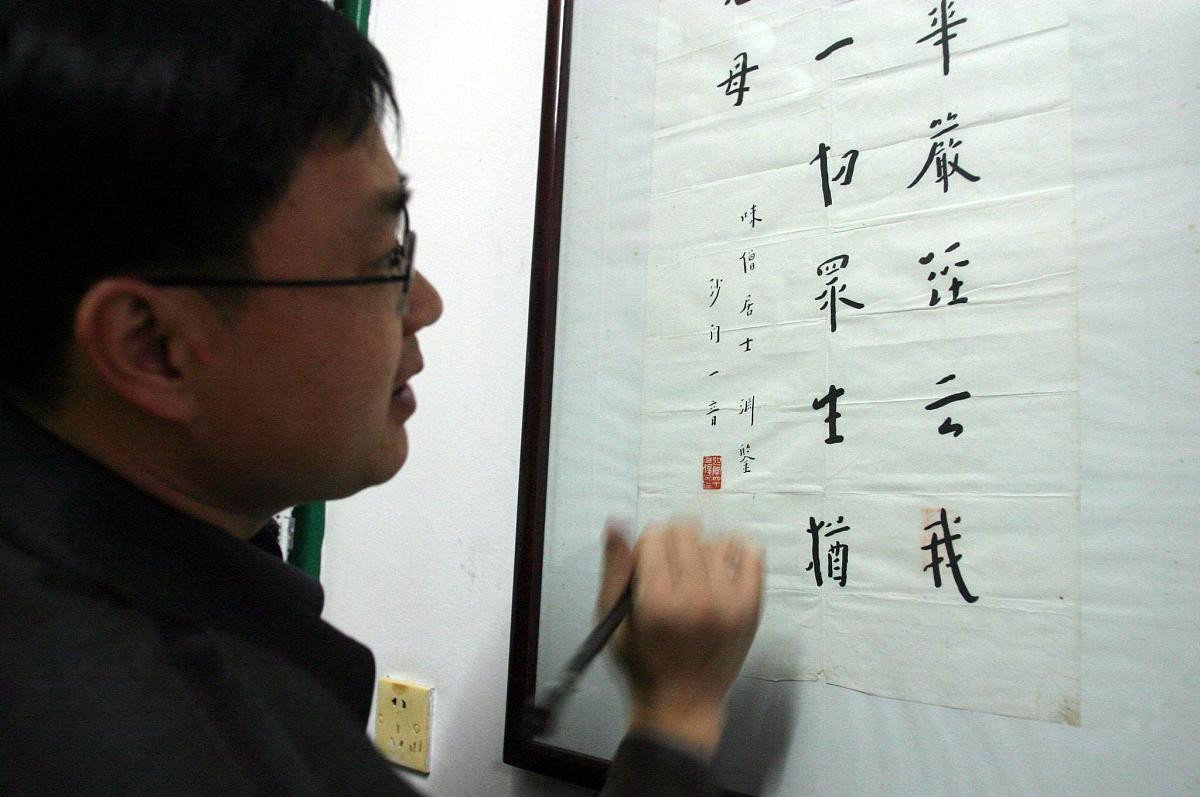 華嚴經云我
一切眾生猶
母
味僧居士淵鑒
沙门一音